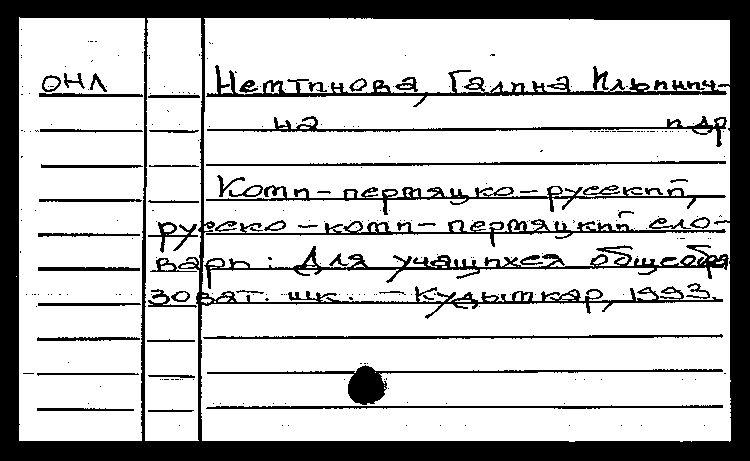 ОНЛ Немтинова, Галина Ильинич-
на и др.
Коми-пермяцко-русский,
русско-коми-пермяцкий сло-
вари: Для учащихся общеобра
зоват. шк. - Кудымкар, 1993.